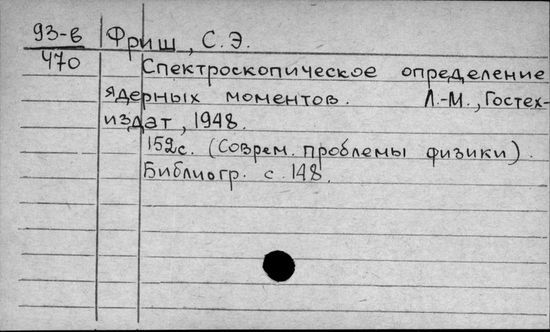 93-6 Фриш, С.Э.
470 Спектроскопическое определение
ядерных моментов. Л.-М., Гостех-
издат, 1948.
152с. (Соврем. проблемы физики).
Библиогр. с. 148.